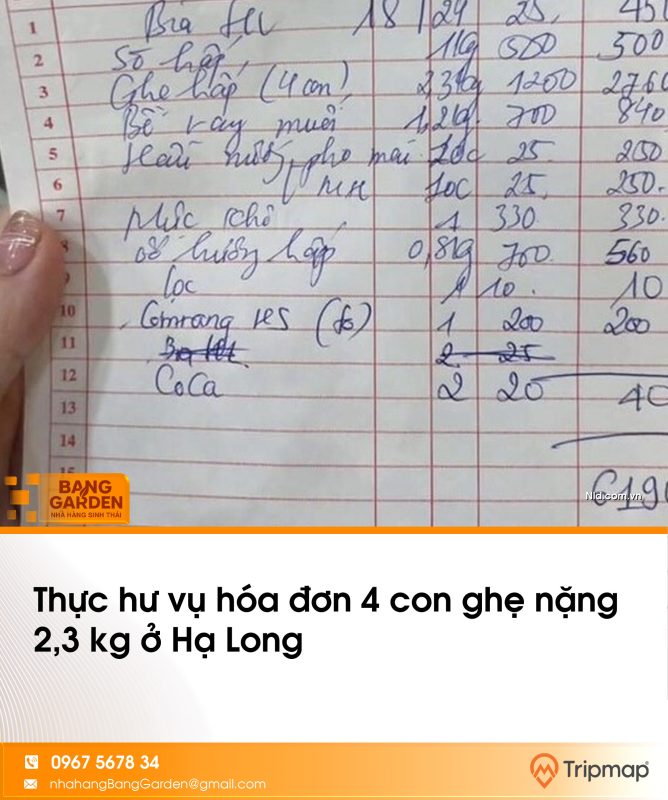 1 Bia HL 18 / 24 25, 45
2 Sò hấp, 1kg 500 500
3 Ghẹ hấp (4 con) 2,3kg 1200 2760
4 Bề rây muối 1,2kg 700 840
5 Hàu nướng pho mai 10c 25 250
6 MH 10c 25, 250.
7 Mực khô 1 330 330.
8 ốc hương hấp 0,8kg 700. 560
9 lọc 1 10. 10
10 Comrang HS (to) 1 200 200
11 2 25
12 CoCa 2 20 40
13
14
15
Nld.com.vn
BANG GARDEN
NHÀ HÀNG SINH THÁI
Thực hư vụ hóa đơn 4 con ghẹ nặng
2,3 kg ở Hạ Long
0967 5678 34
nhahangBangGarden@gmail.com
Tripmap